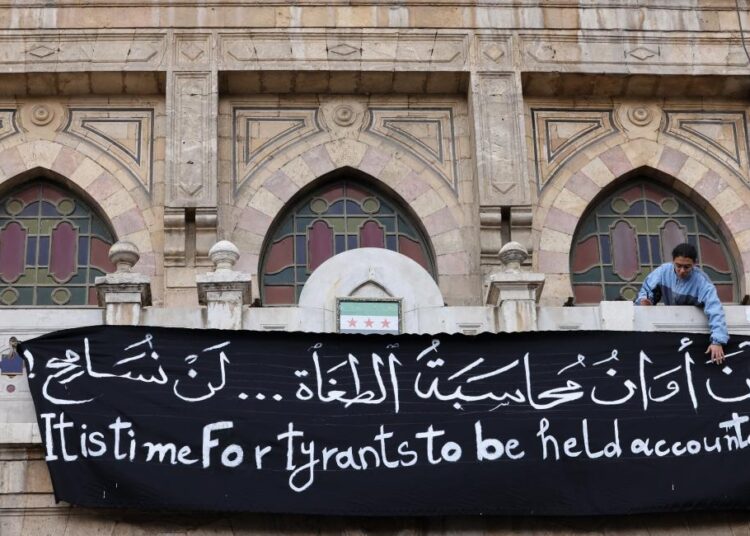 أوانُ مُحاسبةُ الطُغاة ... لن نسامح!
It is time For tyrants to be held account